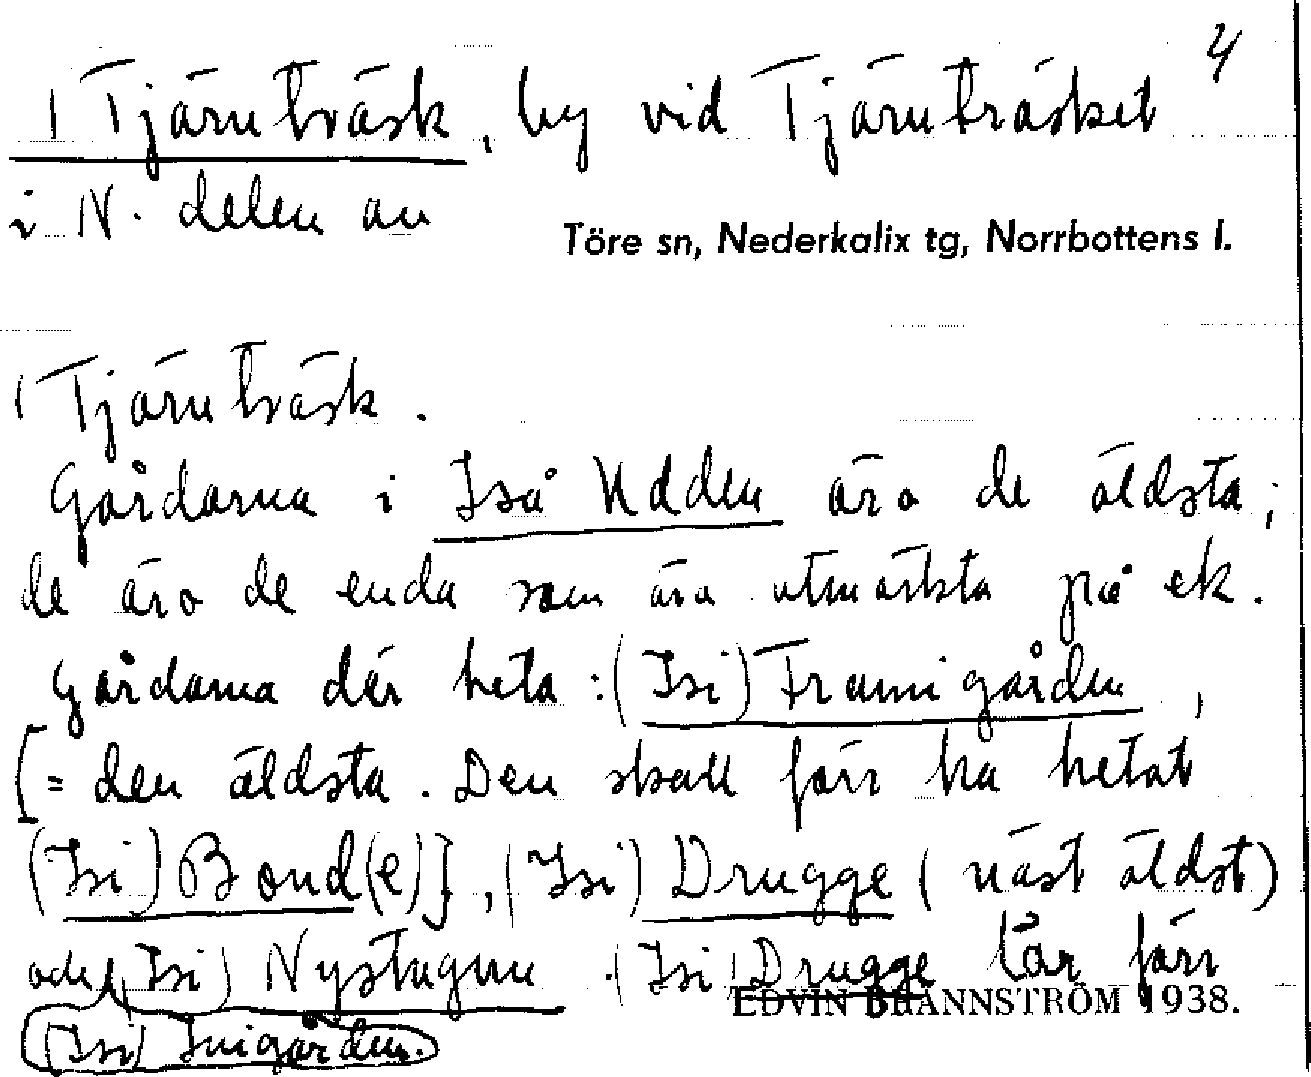 4
Tjärnträsk, by vid Tjärnträsket
i N. delen av
Töre sn, Nederkalix tg, Norrbottens l.
Tjärnträsk.
Gårdarna i Iså Udden äro de äldsta;
de äro de enda som äro utmärkta på ek.
Gårdarna där heta: (Isi) Framigården,
[= den äldsta. Den skall förr ha hetat
(Isi) Bond(e)], (Isi) Drugge (näst äldst)
och (Isi) Nystugun. (Isi) Drugge lär förr
EDVIN BRÄNNSTRÖM 1938.
(Isi) Inigården.